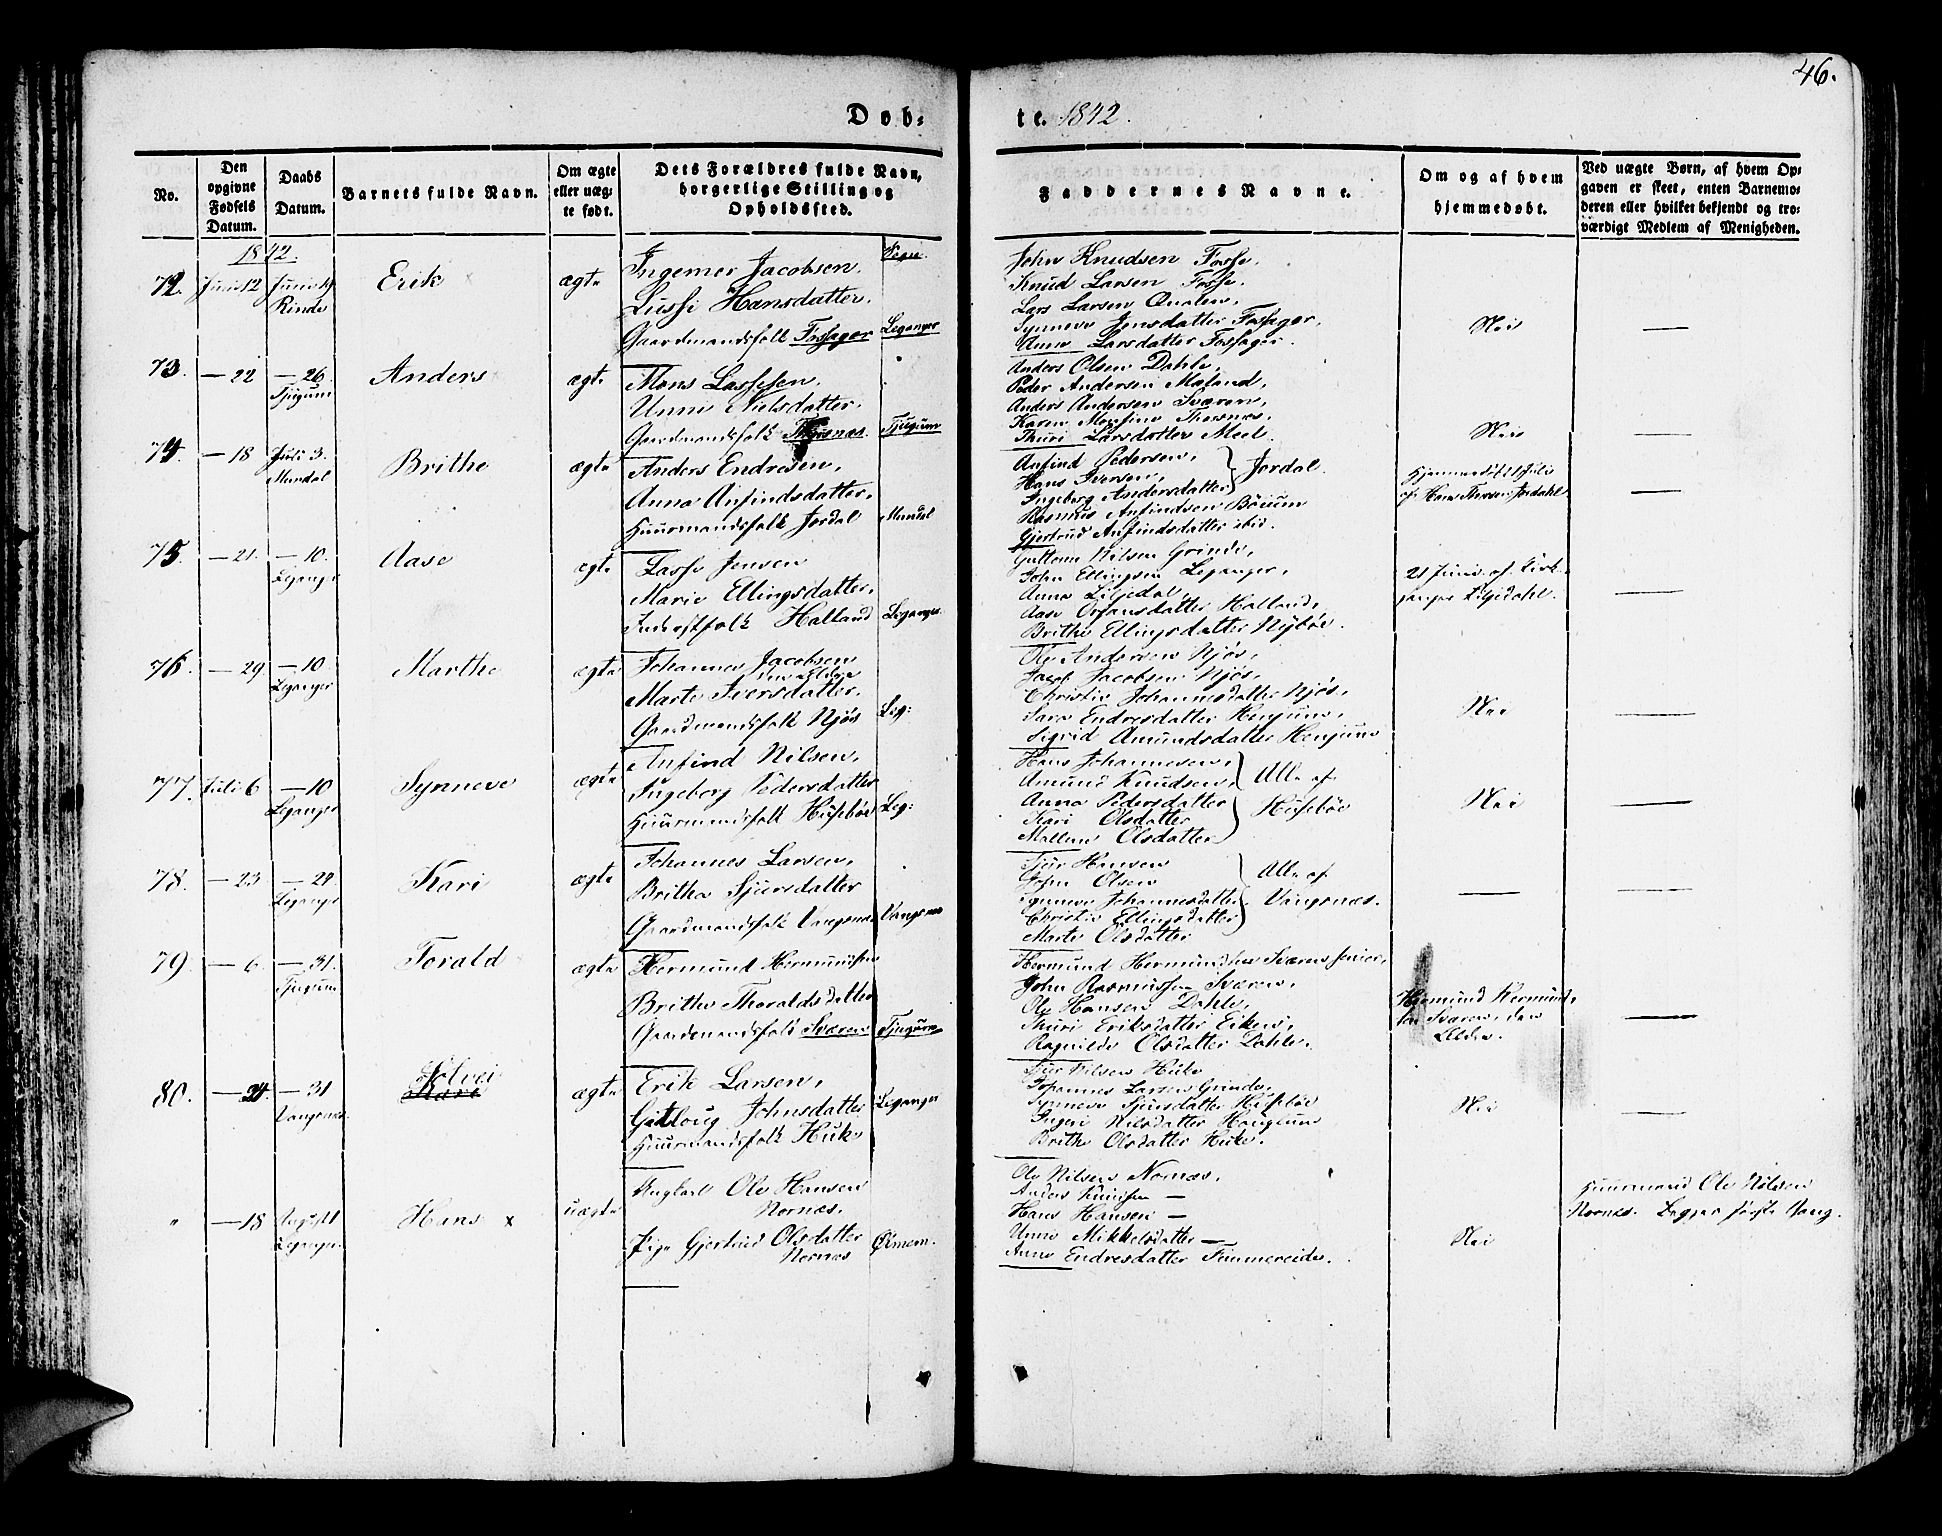 46.
Døb=
te. 1842.
No.
Den opgivne Fødsels Datum.
Daabs Datum.
Barnets fulde Navn.
Om ægte eller uæg= te født.
Dets Forældres fulde Navn, borgerlige Stilling og Opholdssted.
Faddernes Navne.
Om og af hvem hjemmedøbt.
Ved uægte Børn, af hvem Op= gaven er skeet, enten Barnemo= deren eller hvilket bekjendt og tro= værdigt Medlem af Menigheden.
1842.
72. Juni 12
Rinde
Erik
ægte
Ingemer Jacobsen.
Hansdatter.
Gaardmandsfolk Fosager
Leganger
John Knudsen Fosse.
Knud Larsen Fosse.
Lars Larsen Qualen.
Synneve Jensdatter Fosager.
Anne Larsdatter Fosager.
Nei
73. — 22 — 26
Tjugum
Anders
ægte
Mons Lassesen.
Unni Nielsdatter.
Gaardmandsfolk Thorsnæs.
Tjugum
Anders Olsen Dahle,
Peder Andersen Mæland,
Anders Andersen Sværen,
Karen Thorsnæs.
Thuri Larsdatter Meel.
Nei
74. — 18 Juli 3.
Mundal
Brithe
ægte
Anders Endresen,
Anna Anfindsdatter,
Huusmandsfolk Jordal
Mundal
Anfind Pedersen,
Hans Iversen,
Ingeborg Andersdatter } Jordal.
Rasmus Anfindsen Bøium
Gjertrud Anfindsdatter ibid.
af Hans Jordahl
75. — 21. — 10.
Leganger
Aase
ægte
Lasse Jensen
Marie Ellingsdatter,
Inderstfolk Halland
Leganger
Guttorm Nilsen Grinde,
John Ellingsen Leganger,
Anna Liljedal,
Aase Halland,
Brithe Ellingsdatter Nybøe.
21 Juni af Kirke
sanger Liljedahl.
76. — 29. — 10
Leganger
Marthe
ægte
Johannes Jacobsen
Marte Iversdatter.
Gaardmandsfolk Njøs
Leg:
Ole Andersen Njøs,
Jacob Jacobsen Njøs,
Christie Johannesdatter Njøs,
Sara Endresdatter Henjum,
Sigrid Amundsdatter Henjum
Nei
77. Juli 6 — 10
Leganger
Synneve
ægte
Anfind Nilsen,
Ingeborg Pedersdatter
Huusmandsfolk Husebøe
Leg:
Hans Johannesen,
Amund Knudsen,
Anna Pedersdatter
Kari Olsdatter
Malene Olsdatter
} Alle af Husebøe
Nei
78. — 23 — 24
Leganger
Kari
ægte
Johannes Larsen,
Britha Sjursdatter
Gaardmandsfolk Vangsnæs
Vangsnæs
Sjur Hansen
John Olsen
Synneve Johannesdatter
Christie Ellingsdatter
Marte Olsdatter
} Alle af Vangsnæs.
79 — 6. — 31.
Tjugum
Torald
ægte
Hermund Hermundsen
Brithe Thoraldsdatter
Gaardmandsfolk Sværen
Tjugum
Hermund Hermundsen Sværen senior,
John Rasmussen Sværen,
Ole Hansen Dahle,
Thuri Eriksdatter Eiken,
Ragnilde Olsdatter Dahle.
Hermund Hermund=
sen Sværen, den
Ældre.
80. — 24. — 31
Vangsnæs
Solvei
Kari
ægte
Erik Larsen,
Gutloug Johnsdatter
Huusmandsfolk Huke
Leganger
Sjur Nilsen Huke
Johannes Larsen Grinde,
Synneve Sjursdatter Husebøe
Ingeri Nilsdatter Haugum
Brithe Olsdatter Huke.
Nei
" — 18 August
Leganger
Hans x
uægte
Ungkarl Ole Hansen
Nornæs.
Pige Gjertrud Olsdatter
Nornæs
Ole Nilsen Nornæs,
Anders Knudsen —
Hans Hansen —
Unni Mikkelsdatter —
Anne Endresdatter Fimmereide.
Nei
Huusmand Ole Nilsen
Nornæs. Begges første Gang.